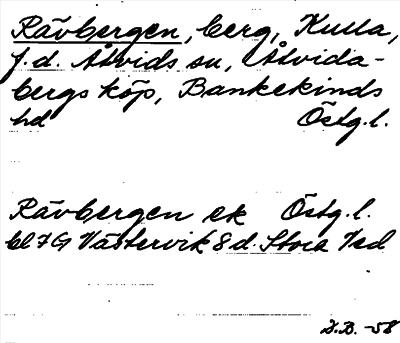 Rävbergen, berg, Kulla,
f.d. Åtvids sn, Åtvida-
bergs köp, Bankekinds
hd Östg.l.
Rävbergen ek Östg.l.
bl 7G Västervik 8d. Stora Ved
J.B. -58